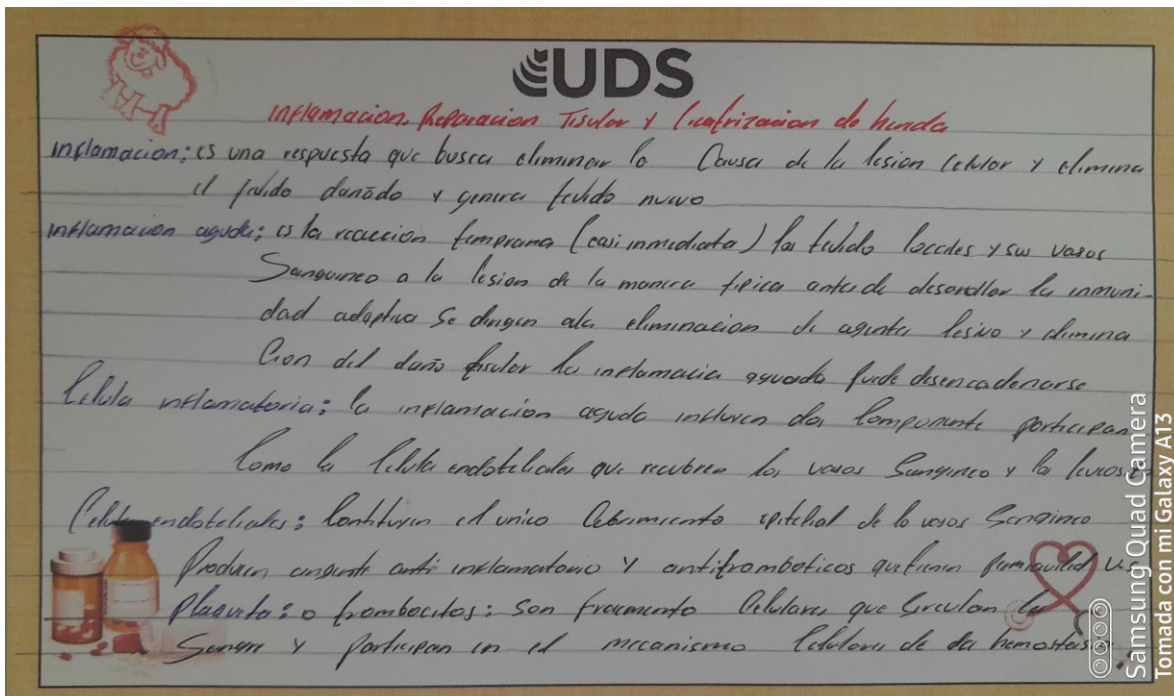 UDS
Inflamacion, Reparacion Tisular y Cicatrizacion de herida
Inflamacion: es una respuesta que busca eliminar la Causa de la lesion Celular y elimina
el tejido dañado y genera tejido nuevo
Inflamacion aguda: es la reaccion temprana (casi inmediata) los tejido locales y sus vasos
Sanguineo a la lesion de la manera tipica antes de desarollar la inmuni-
dad adaptiva Se dirigen ala eliminacion de agente lesivo y elimina
Cion del daño tisular la inflamacia aguada puede desencadenarse
Celula inflamatoria: la inflamacion aguda influyen dos Componente participan
Como la Celula endoteliales que recubren los vasos Sanguineo y los
Celula endoteliales: Contituyen el unico Cebrimiento epitelial de lo vasos Sanguineo
Producen anti inflamatorio y antitromboticos
Plaqueta: o trombocitos: Son fracmento Celulares que Circulan la
Sangre y Participan en el mecanismo Celulares de la hemostasia.
Samsung Quad Camera
Tomada con mi Galaxy A13